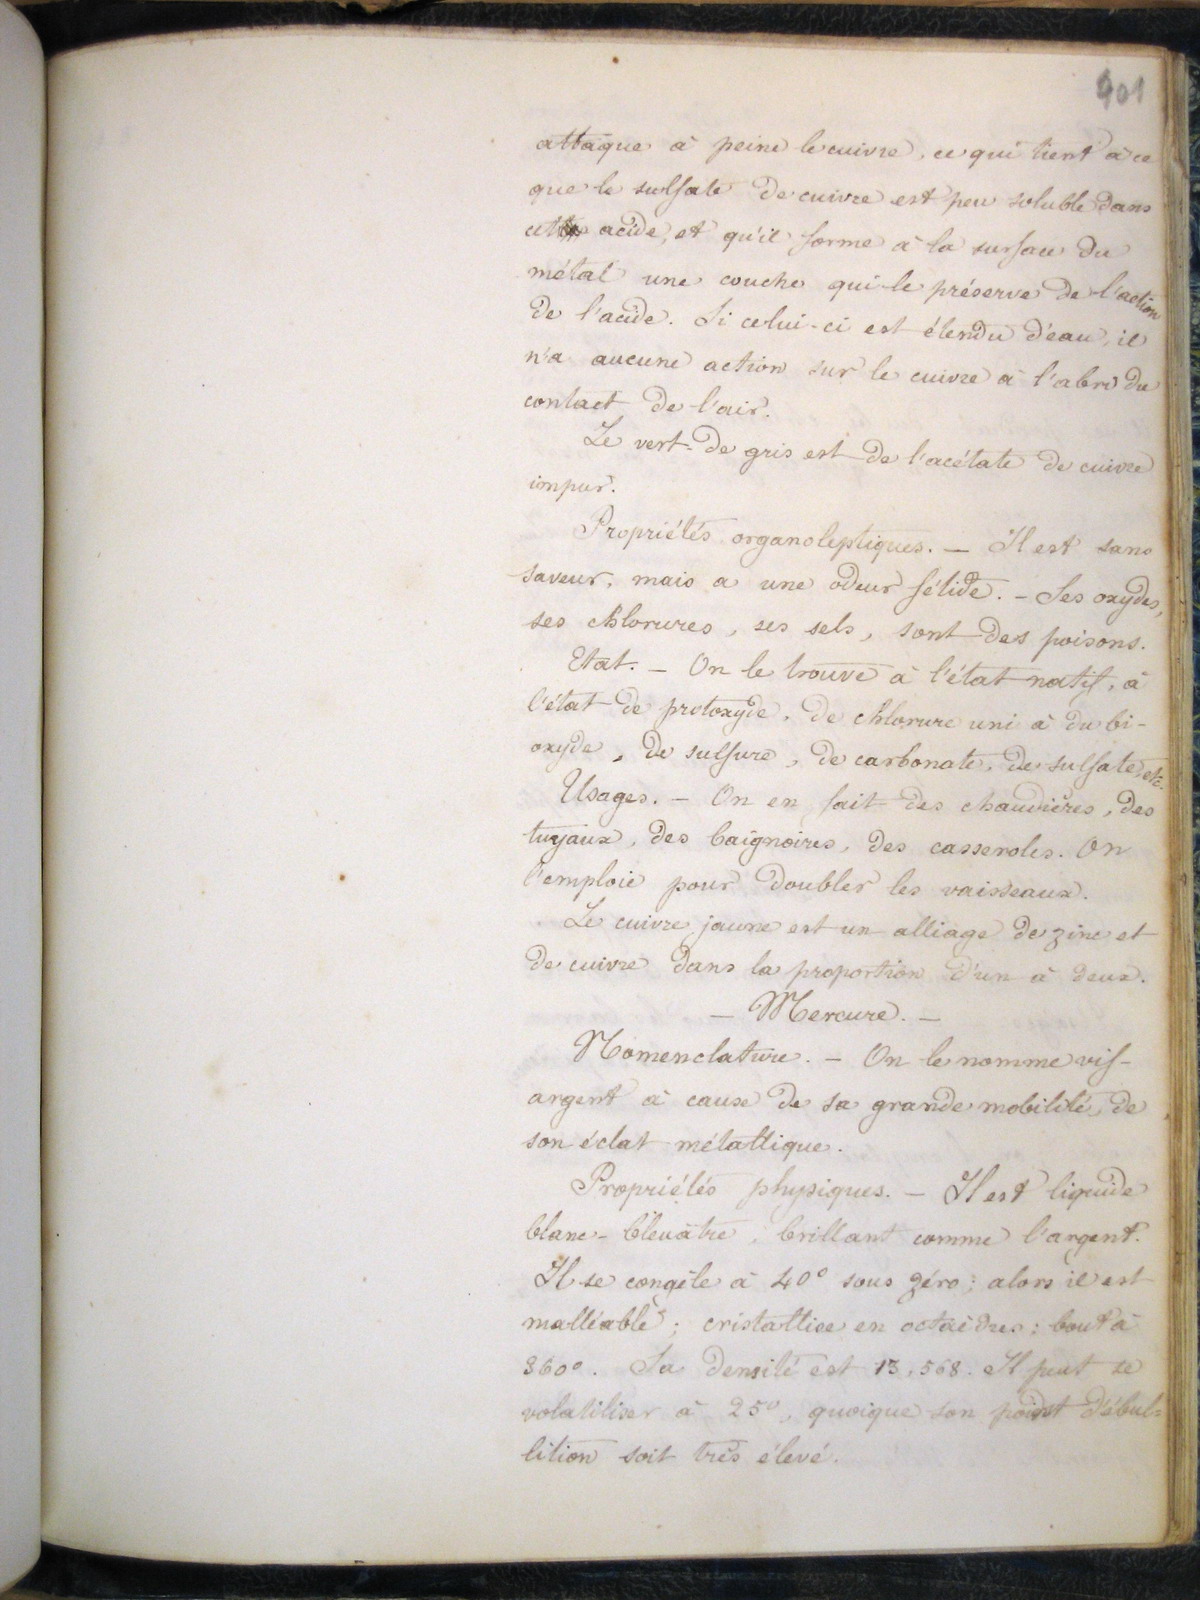 401
attaque à peine le cuivre, ce qui tient à ce
que le sulfate de cuivre est peu soluble dans
cet acide, et qu'il forme à la surface du
métal une couche qui le préserve de l'action
de l'acide. Si celui-ci est étendu d'eau, il
n'a aucune action sur le cuivre à l'abri du
contact de l'air.
Le vert-de gris est de l'acétate de cuivre
impur.
Propriétés organoleptiques. — Il est sans
saveur, mais a une odeur fétide. — Ses oxydes,
ses chlorures, ses sels, sont des poisons.
Etat. — On le trouve à l'état natif, à
l'état de protoxyde, de chlorure uni à du bi-
oxyde, de sulfure, de carbonate, de sulfate, etc.
Usages. — On en fait des chaudières, des
tuyaux, des baignoires, des casseroles. On
l'emploie pour doubler les vaisseaux.
Le cuivre jaune est un alliage de zinc et
de cuivre dans la proportion d'un à deux.
— Mercure. —
Nomenclature. — On le nomme vif-
argent à cause de sa grande mobilité, de
son éclat métallique.
Propriétés physiques. — Il est liquide
blanc-bleuâtre, brillant comme l'argent.
Il se congèle à 40° sous zéro; alors il est
malléable; cristallise en octaèdres; bout à
360°. Sa densité est 13,568. Il peut se
volatiliser à 25°, quoique son point d'ébul-
lition soit très élevé.